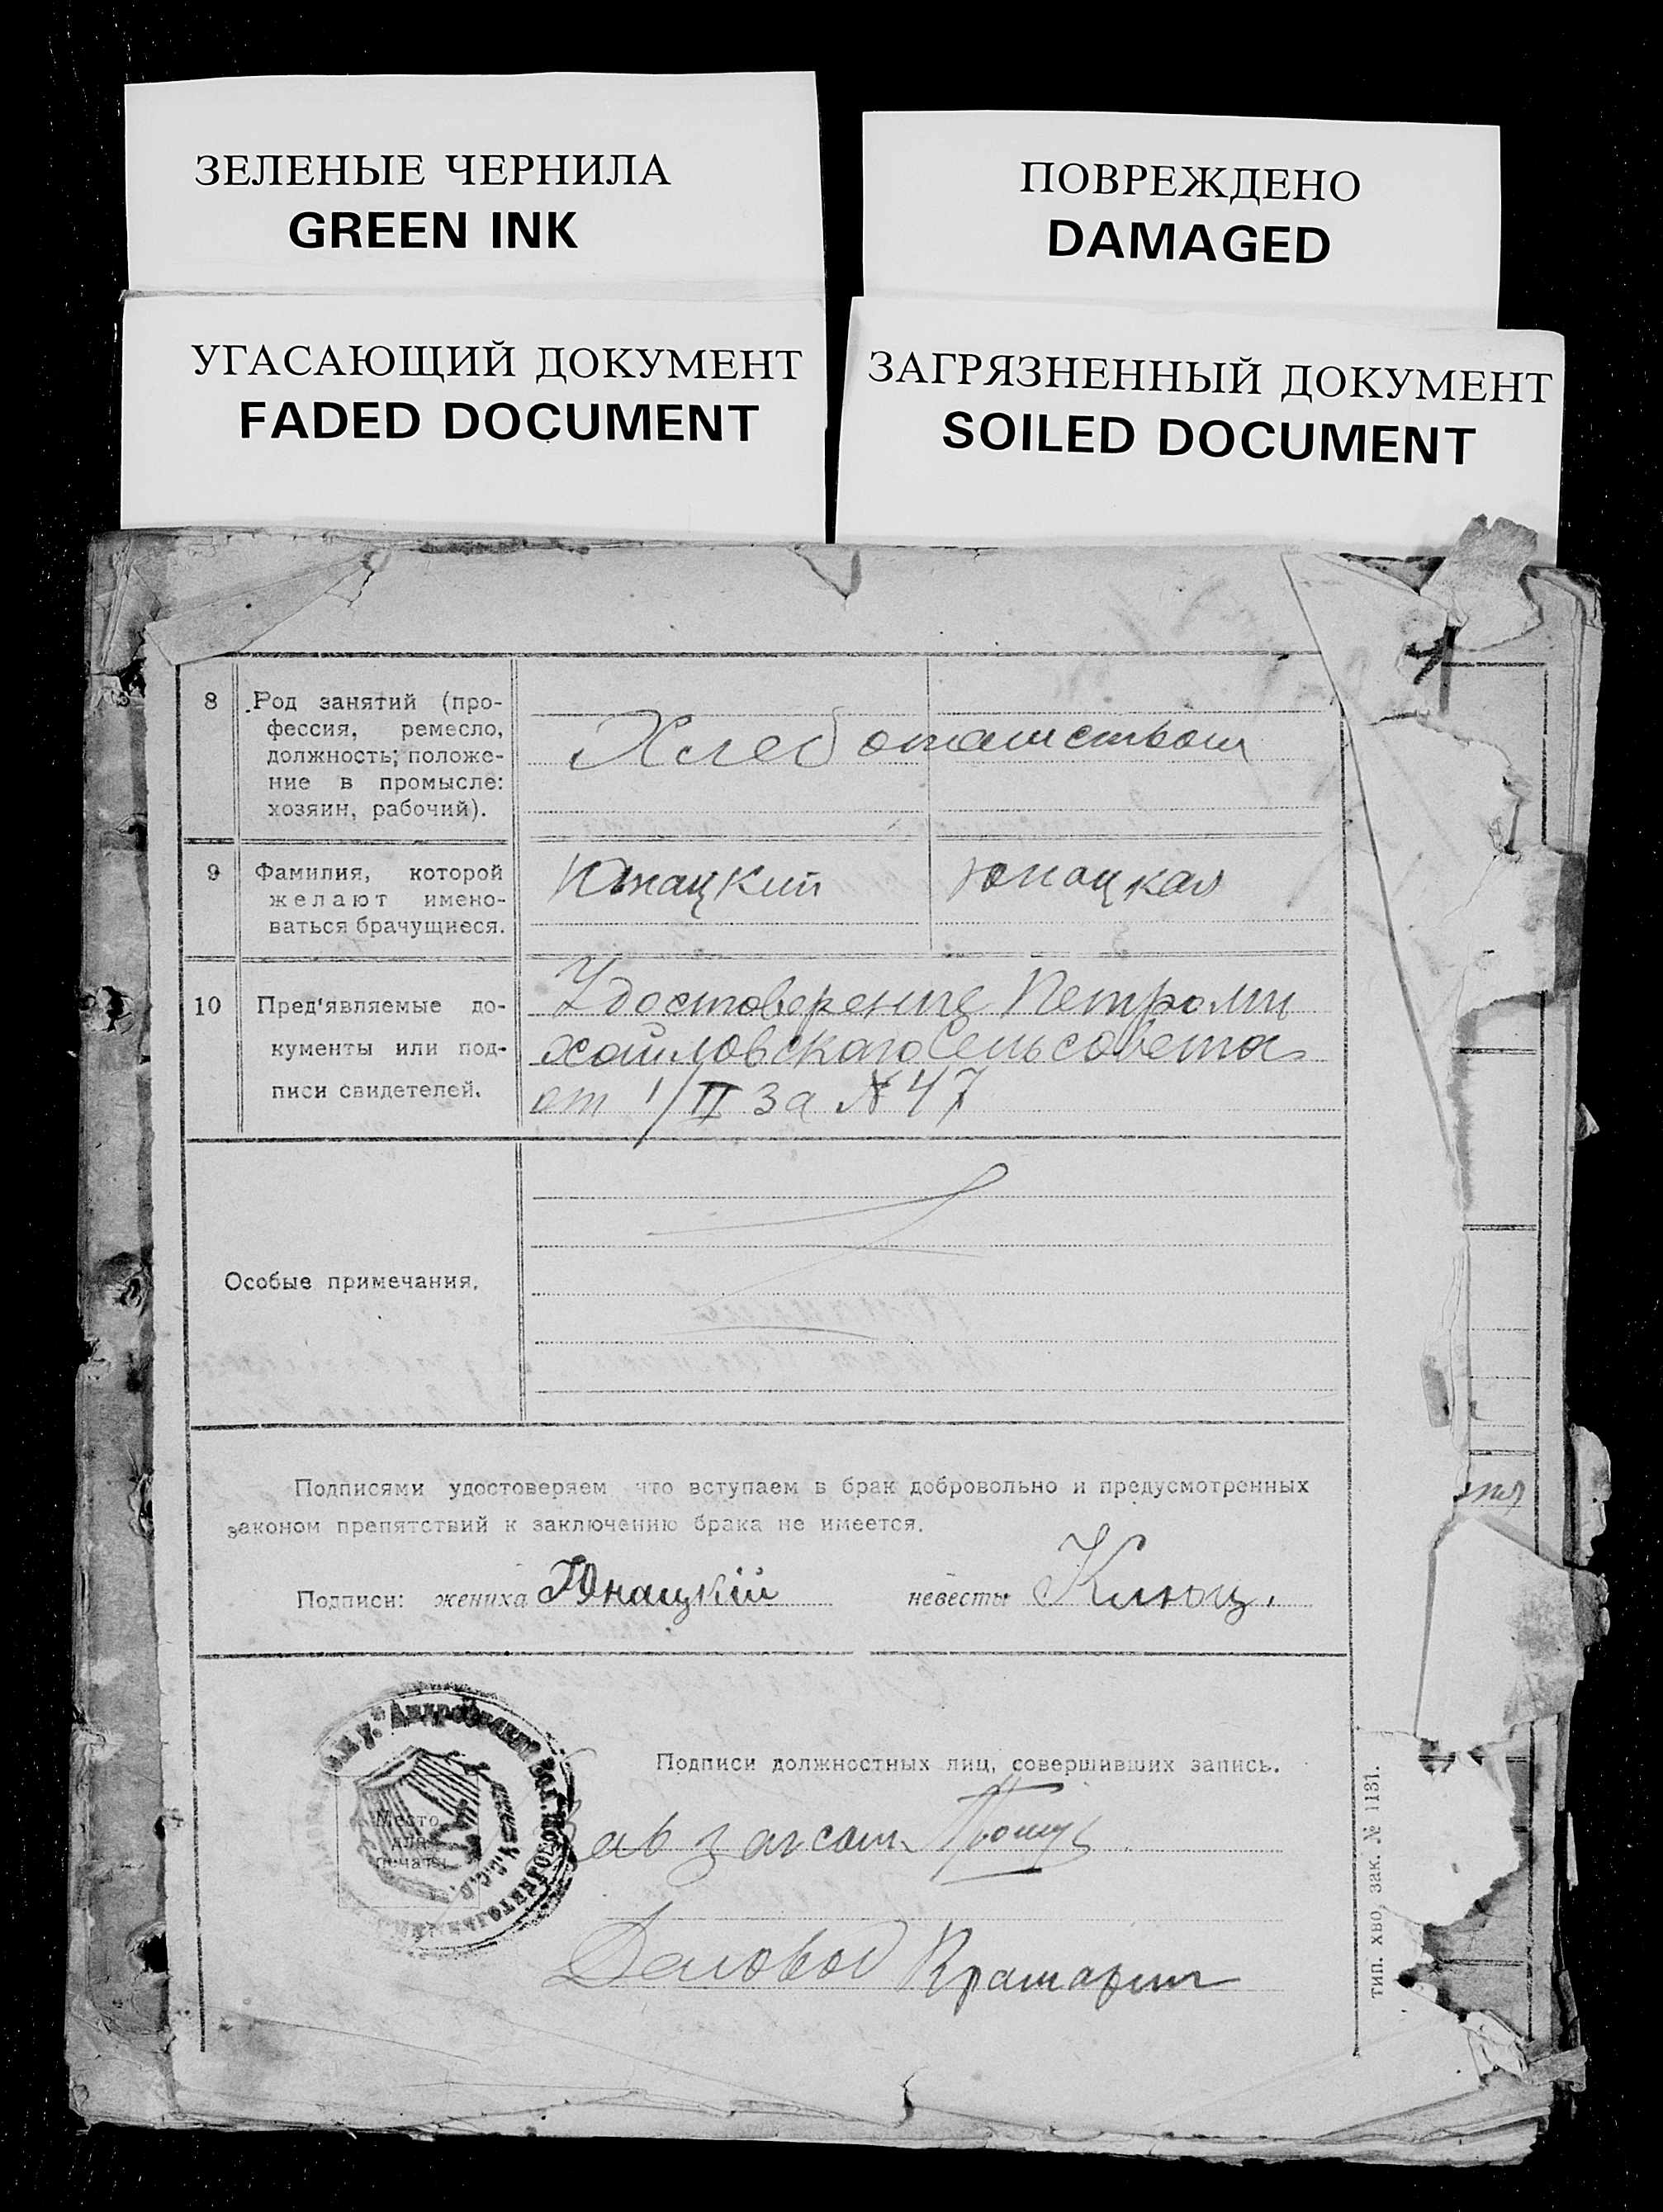 ЗЕЛЕНЫЕ ЧЕРНИЛА
GREEN INK
ПОВРЕЖДЕНО
DAMAGED
УГАСАЮЩИЙ ДОКУМЕНТ
FADED DOCUMENT
ЗАГРЯЗНЕННЫЙ ДОКУМЕНТ
SOILED DOCUMENT
8 Род занятий (про-
фессия, ремесло,
должность; положе-
ние в промысле:
хозяин, рабочий).
Хлебопашеством
9 Фамилия, которой
желают имено-
ваться брачущиеся.
Юнацкий Юнацкая
10 Пред'являемые до-
кументы или под-
писи свидетелей.
Удостоверение Петроми
хайловского Сельсовета
от 1/II за № 47
Особые примечания.
Подписями удостоверяем что вступаем в брак добровольно и предусмотренных
законом препятствий к заключению брака не имеется.
Подписи: жениха Юнацкій невесты Клюц.
Подписи должностных лиц, совершивших запись.
Место
для
печати
У.С.С.Р.
Зав загсом
Деловод
тип. хво, зак. № 1131.